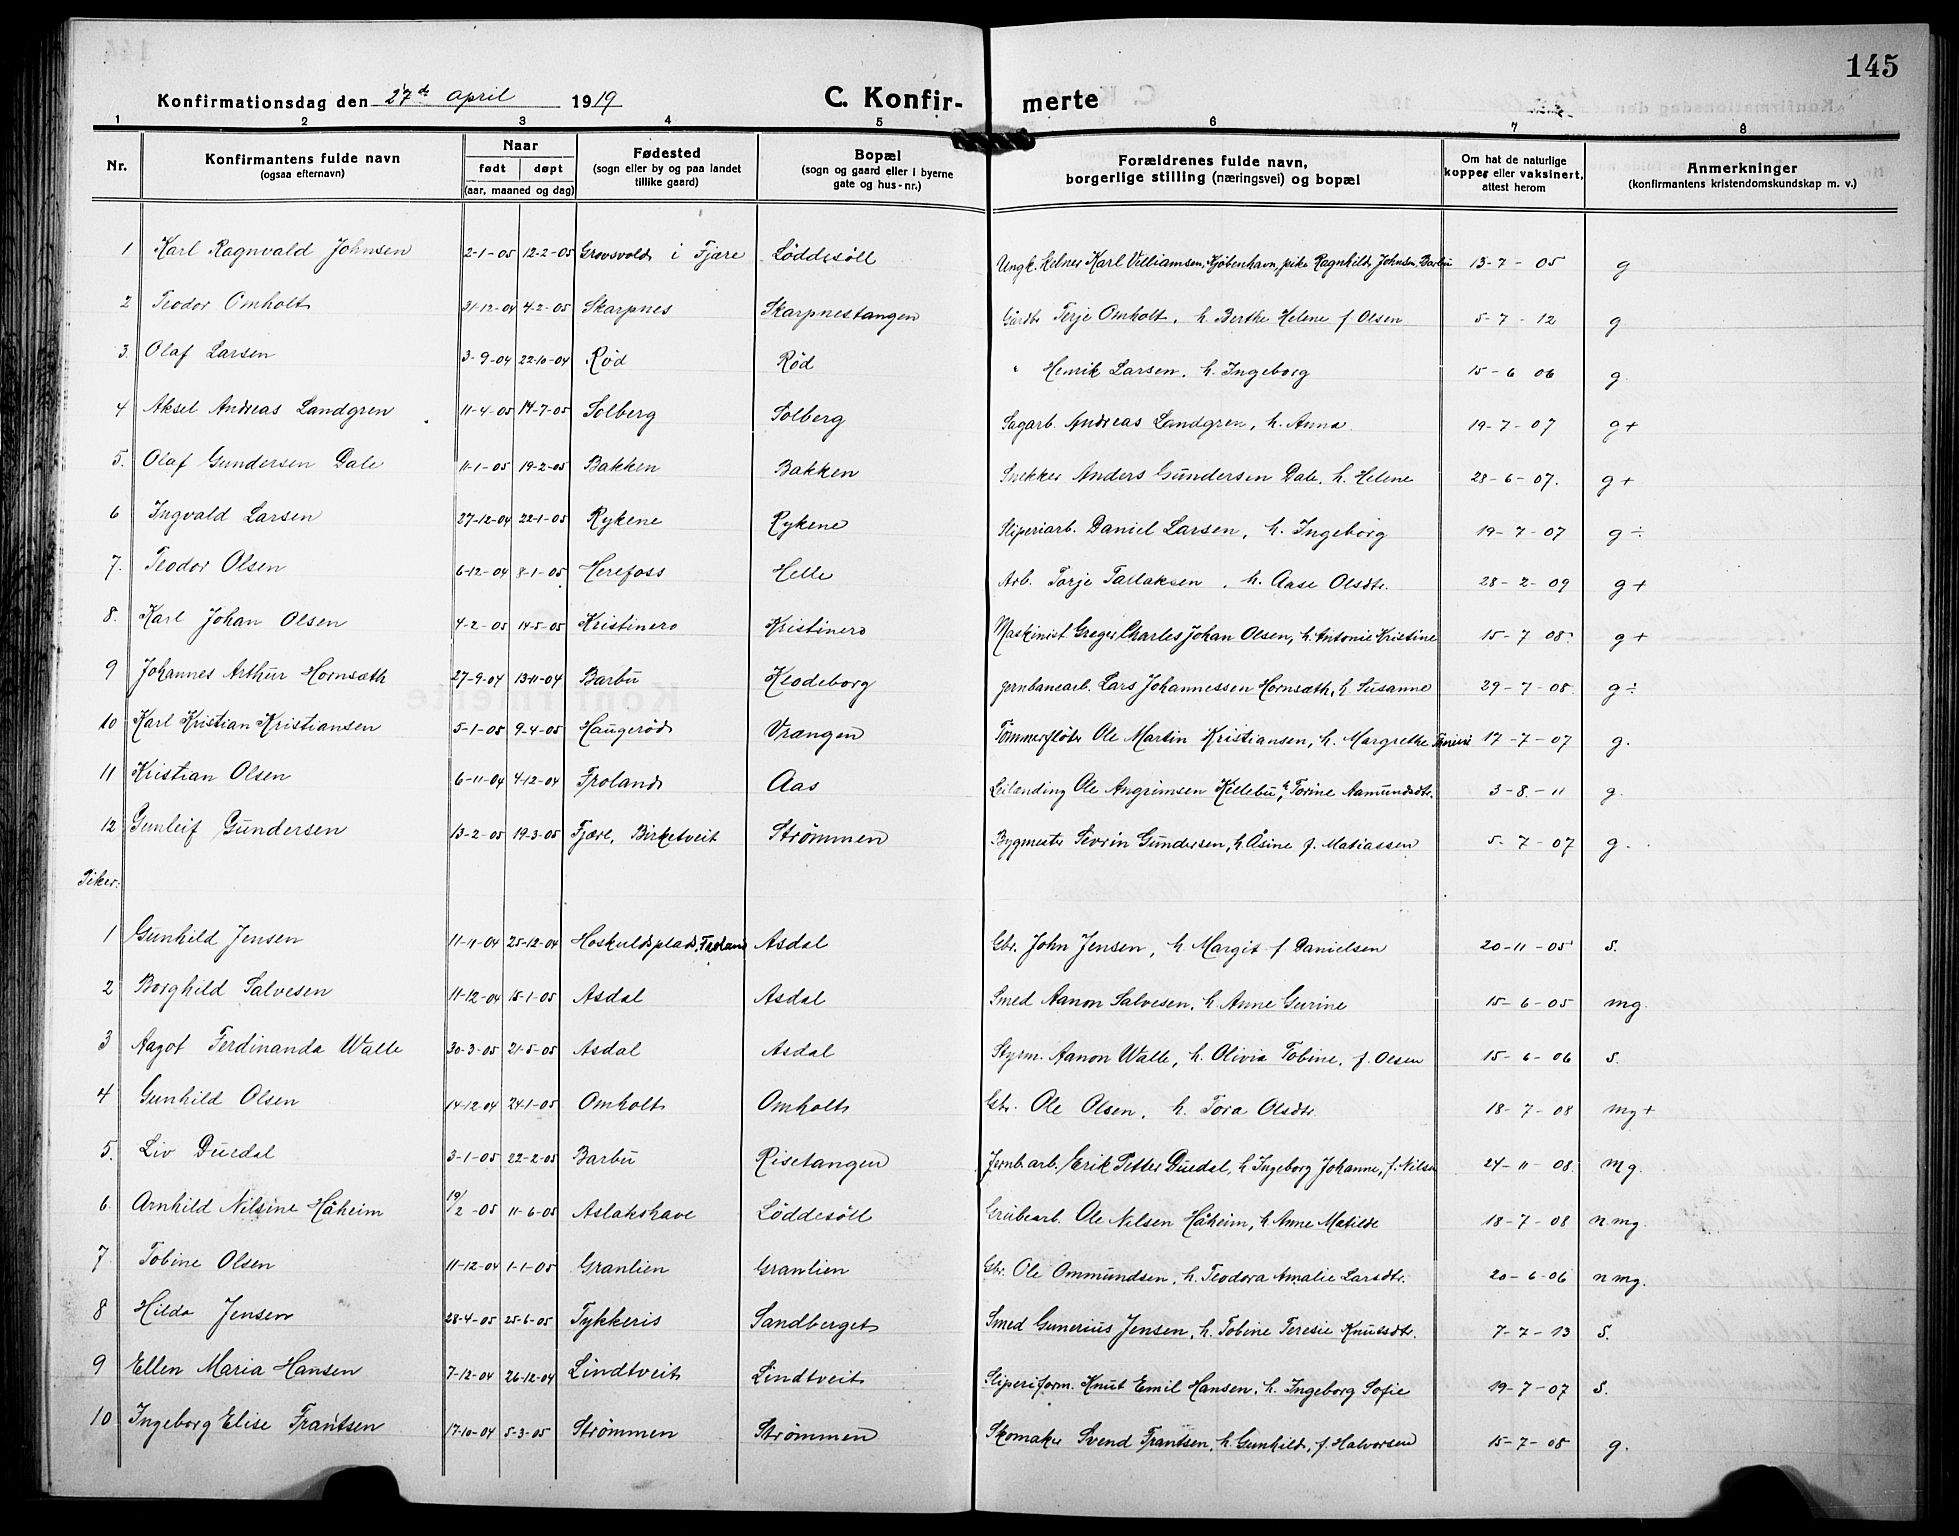 145
Konfirmationsdag den 27de april 1919 C. Konfir- merte
1 2 3 4 5 6 7 8
Nr. Konfirmantens fulde navn (ogsaa efternavn) Naar født døpt (aar, maaned og dag) Fødested (sogn eller by og paa landet tillike gaard) Bopæl (sogn og gaard eller i byerne gate og hus-nr.) Forældrenes fulde navn, borgerlige stilling (næringsvei) og bopæl Om hat de naturlige kopper eller vaksinert, attest herom Anmerkninger (konfirmantens kristendomskundskap m. v.)
1 Karl Ragnvald Johnsen 2-1-05 12-2-05 Grovsvold i Fjære Løddesöll Ungk. Kelner Karl Villiamsen, Kjøbenhavn, pike Ragnhild Johnsen, Barbu 13-7-05 g
2 Teodor Omholt 31-12-04 4-2-05 Skarpnes Skarpnestangen Gårdbr Terje Omholt, h. Berthe Helene f Olsen 5-7-12 g
3. Olaf Larsen 3-9-04 22-10-04 Rød Rød " Henrik Larsen, h. Ingeborg 15-6 06 g.
4 Aksel Andreas Landgren 11-4-05 14-7-05 Solberg Solberg Sagarb. Andreas Landgren, h. Anna 19-7-07 g+
5. Olaf Gundersen Dale 11-1-05 19-2-05 Bakken Bakken Snekker Anders Gundersen Dale, h. Helene 28-6-07. g+
6 Ingvald Larsen 27-12-04 22-1-05 Rykene Rykene Sliperiarb. Daniel Larsen, h. Ingeborg 19-7-07 g÷
7. Teodor Olsen 6-12-04 8-1-05 Herefoss Helle Arb. Torje Tallaksen, h. Aase Olsdtr. 28-2-09 g+
8. Karl Johan Olsen 4-2-05 14-5-05 Kristinero Kristinero Maskinist Greger Charles Johan Olsen, h. Antonie Kristine 15-7 08 g+
9 Johannes Arthur Hornsæth 27-9-04 13-11-04 Barbu Klodeborg Jernbanearb. Lars Johannessen Hornsæth, h Susanne 29-7-08. g÷
10 Karl Kristian Kristiansen 5-1-05 9-4-05 Haugerød Vrangen Tømmerfløter Ole Martin Kristiansen, h. Margrethe 17-7-07 g.
11 Kristian Olsen 6-11-04 4-12-04 Froland Aas Leilænding Ole Angrimsen Killebu, h Torine Aamundsdtr. 3-8-11 g.
12 Gunleif Gundersen 13-2-05 19-3-05 Fjære, Birketveit Strømmen Bygmester Sevrin Gundersen, h. Åsine f. Matiassen 5-7-07 g.
Piker:
1 Gunhild Jensen 11-11-04 25-12-04 Hoskuldsplads, Froland Asdal Gbr. John Jensen, h. Margit f Danielsen 20-11-05 s.
2 Borghild Salvesen 11-12-04 15-1-05 Asdal Asdal Smed Aanon Salvesen, h. Anne Gurine 15-6-05 mg.
3 Aagot Ferdinanda Walle 30-3-05 21-5-05 Asdal Asdal Styrm. Aanon Walle, h. Olivia Tobine, f. Olsen 15-6-06 s.
4 Gunhild Olsen 14-12-04 24-1-05 Omholt Omholt Gbr. Ole Olsen, h. Tora Olsdtr. 18-7-08 mg+
5. Liv Duedal 3-1-05 22-2-05 Barbu Risetangen Jernb.arb. Erik Petter Duedal, h Ingeborg Johanne, f. Nilsen 24-11-08. mg.
6. Arnhild Nilsine Håheim 19/2-05 11-6-05 Aslakshave Løddesöll Grubearb. Ole Nilsen Håheim, h Anne Matilde 18-7-08 n mg.
7 Tobine Olsen 11-12-04 1-1-05 Granlien Granlien Gbr. Ole Ommundsen, h. Teodora Amalie Larsdtr. 20-6-06 n mg.
8 Hilda Jensen 28-4-05 25-6-05 Tykkeris Sandberget Smed Gunerius Jensen, h. Tobine Teresie Knutsdtr. 7-7-13 s.
9 Ellen Maria Hansen 7-12-04 26-12-04 Lindtveit Lindtveit Sliperiform. Knut Emil Hansen, h. Ingeborg Sofie 19-7-07 s.
10 Ingeborg Elise Frantsen 17-10-04 5-3-05 Strømmen Strømmen Skomaker Svend Frantsen, h. Gunhild, f. Halvorsen 15-7-08 g.